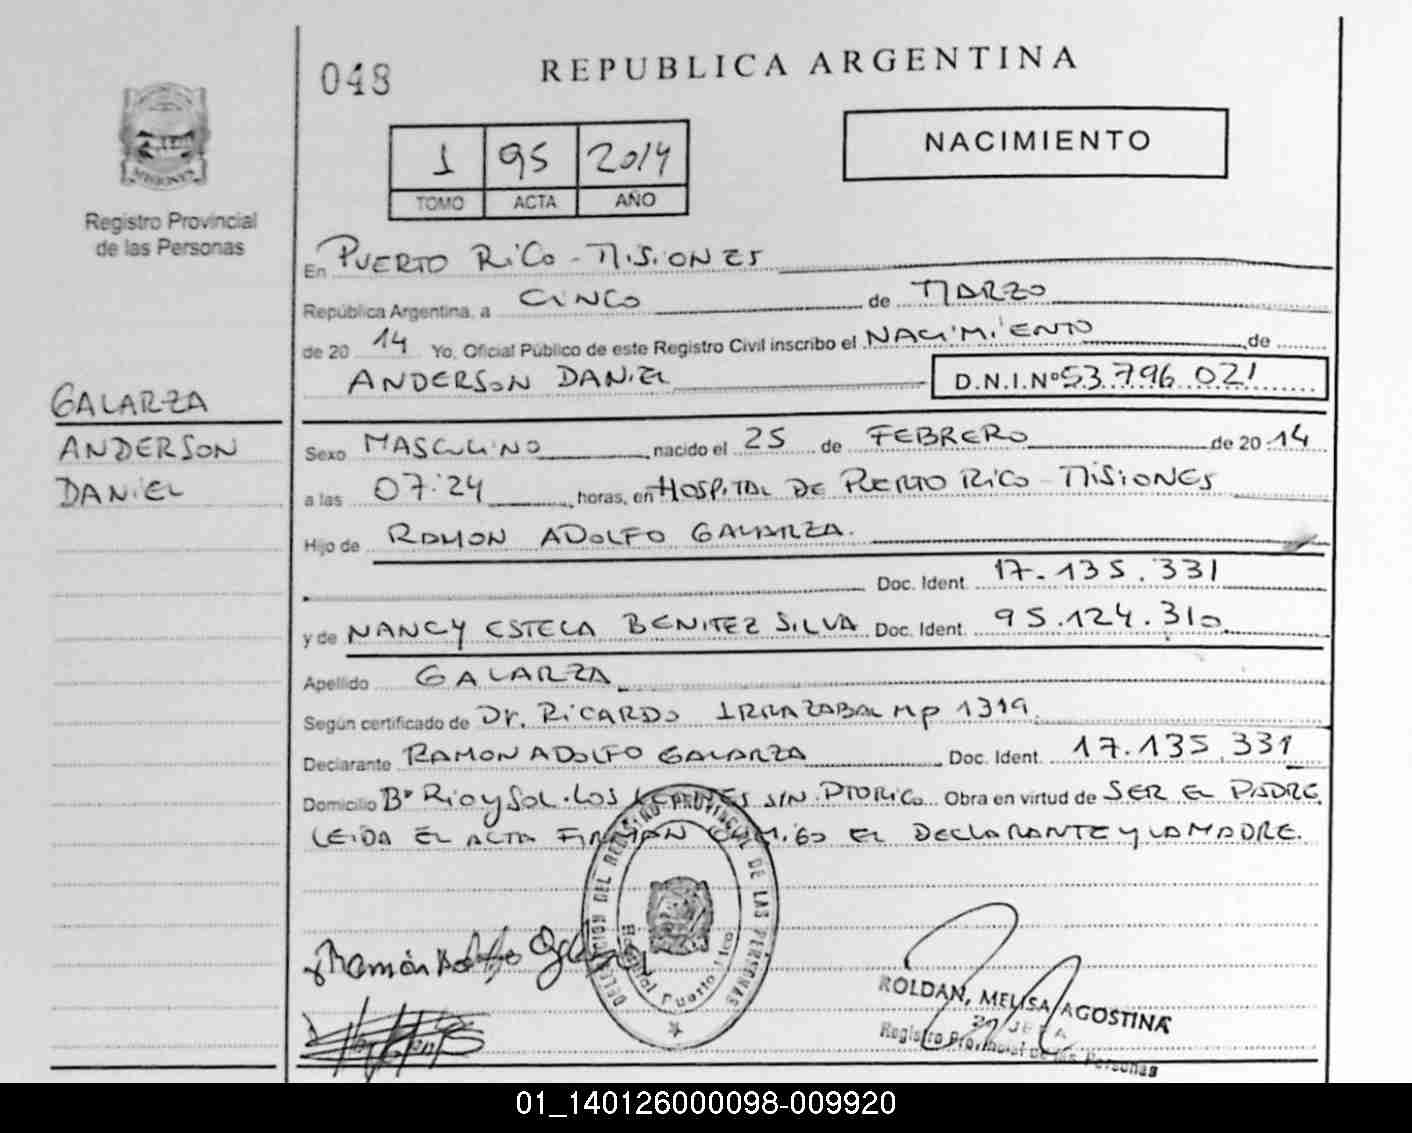 048
REPUBLICA ARGENTINA
NACIMIENTO
1 95 2014
TOMO ACTA AÑO
MISIONES
Registro Provincial
de las Personas
En PUERTO RICO - MISIONES
República Argentina, a CINCO de MARZO
de 20 14 Yo, Oficial Público de este Registro Civil inscribo el NACIMIENTO de
ANDERSON DANIEL D.N.I.Nº 53.796.021
GALARZA
ANDERSON
DANIEL
Sexo MASCULINO nacido el 25 de FEBRERO de 20 14
a las 07:24 horas, en HOSPITAL DE PUERTO RICO - MISIONES
Hijo de RAMON ADOLFO GALARZA.
Doc. Ident. 17.135.331
y de NANCY ESTELA BENITEZ SILVA Doc. Ident. 95.124.310
Apellido GALARZA
Según certificado de Dr. RICARDO IRRAZABAL MP 1319.
Declarante RAMON ADOLFO GALARZA Doc. Ident. 17.135.331
Domicilio Bº RIO Y SOL. LOS S/N. PTO RICO Obra en virtud de SER EL PADRE
LEIDA EL ACTA FIRMAN CONMIGO EL DECLARANTE Y LA MADRE.
DELEGACION DEL REGISTRO PROVINCIAL DE LAS PERSONAS
Hospital Puerto Rico
Ramón Adolfo
ROLDAN, MELISA AGOSTINA
JEFA
Registro Provincial de las Personas
01_140126000098-009920